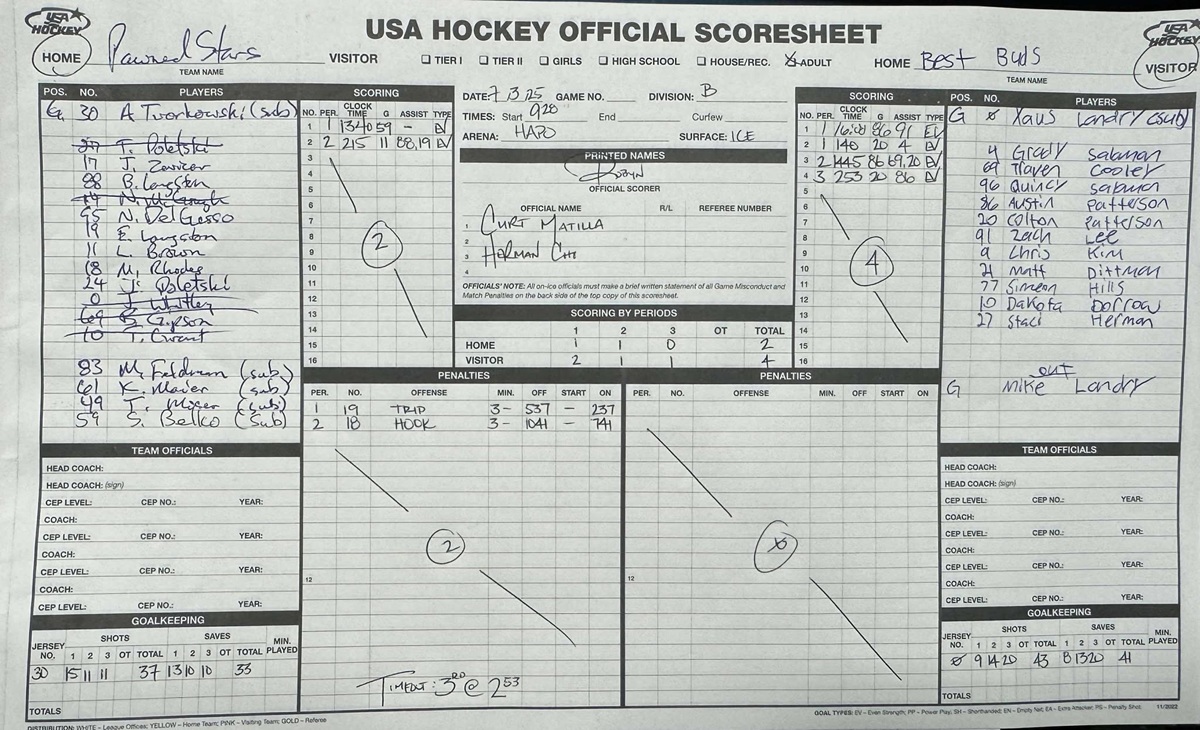 USA HOCKEY
USA HOCKEY OFFICIAL SCORESHEET
USA HOCKEY
HOME Pawned Stars VISITOR
TEAM NAME
☐ TIER I ☐ TIER II ☐ GIRLS ☐ HIGH SCHOOL ☐ HOUSE/REC. ☒ ADULT
HOME Best Buds VISITOR
TEAM NAME
POS. NO. PLAYERS
G 30 A Tvorkowski (sub)
27 T. Poletski
17 J.
88 B. Langston
N.
95 N. DelGesso
19 E. Langston
11 L. Brown
18 M. Rhodes
24 J. Poletski
0 J. Whitley
69 B. Gipson
10 T. Curant
83 M. Feldman (sub)
61 K. Maier (sub)
49 T. Miser (sub)
59 S. Belko (sub)
SCORING
NO. PER. CLOCK TIME G ASSIST TYPE
1 1 1340 59 - EV
2 2 215 11 88,19 EV
3
4
5
6
7
8
9
10
11
12
13
14
15
16
2
DATE: 7 13 25 GAME NO. DIVISION: B
TIMES: Start 920 End Curfew
ARENA: HAPO SURFACE: ICE
PRINTED NAMES
OFFICIAL SCORER
OFFICIAL NAME R/L REFEREE NUMBER
1 CURT MATILLA
2
3 HERMAN CHI
4
OFFICIALS' NOTE: All on-ice officials must make a brief written statement of all Game Misconduct and
Match Penalties on the back side of the top copy of this scoresheet.
SCORING BY PERIODS
1 2 3 OT TOTAL
HOME 1 1 0 2
VISITOR 2 1 1 4
SCORING
NO. PER. CLOCK TIME G ASSIST TYPE
1 1 16:00 86 91 EV
2 1 140 20 4 EV
3 2 1445 86 69,20 EV
4 3 253 20 86 EV
5
6
7
8
9
10
11
12
13
14
15
16
4
POS. NO. PLAYERS
G 0 Xaus Landry (sub)
4 Grady Salmon
69 Haven Cooley
96 Quincy Salmon
86 Austin Patterson
20 Colton Patterson
91 Zach Lee
9 Chris Kim
21 Matt Dittman
77 Simeon Hills
10 Dakota Dorrow
27 Staci Herman
out
G Mike Landry
PENALTIES
PER. NO. OFFENSE MIN. OFF START ON
1 19 TRIP 3- 537 - 237
2 18 HOOK 3- 1041 - 741
2
12
TIMEOUT: 3RD @ 253
PENALTIES
PER. NO. OFFENSE MIN. OFF START ON
0
12
TEAM OFFICIALS
HEAD COACH:
HEAD COACH: (sign)
CEP LEVEL: CEP NO.: YEAR:
COACH:
CEP LEVEL: CEP NO.: YEAR:
COACH:
CEP LEVEL: CEP NO.: YEAR:
COACH:
CEP LEVEL: CEP NO.: YEAR:
GOALKEEPING
JERSEY NO. SHOTS 1 2 3 OT TOTAL SAVES 1 2 3 OT TOTAL MIN. PLAYED
30 15 11 11 37 13 10 10 33
TOTALS
TEAM OFFICIALS
HEAD COACH:
HEAD COACH: (sign)
CEP LEVEL: CEP NO.: YEAR:
COACH:
CEP LEVEL: CEP NO.: YEAR:
COACH:
CEP LEVEL: CEP NO.: YEAR:
COACH:
CEP LEVEL: CEP NO.: YEAR:
GOALKEEPING
JERSEY NO. SHOTS 1 2 3 OT TOTAL SAVES 1 2 3 OT TOTAL MIN. PLAYED
0 9 14 20 43 8 13 20 41
TOTALS
DISTRIBUTION: WHITE – League Offices; YELLOW – Home Team; PINK – Visiting Team; GOLD – Referee
GOAL TYPES: EV – Even Strength; PP – Power Play; SH – Shorthanded; EN – Empty Net; EA – Extra Attacker; PS – Penalty Shot 11/2022